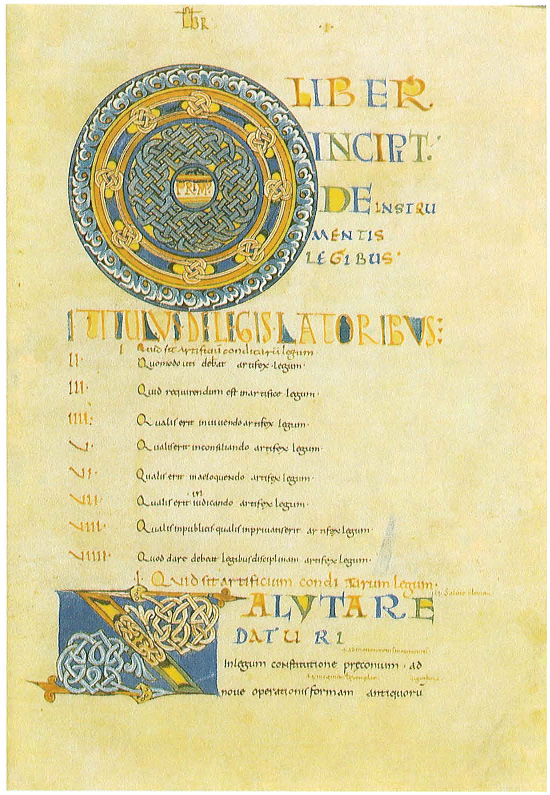 LIBR
PRIMꝰ
LIBER
INCIPIT:
DE INSTRU
MENTIS
LEGIBUS
I TITULUS DE LEGISLATORIBUS:
I Quid sit artificiū condendarū legum
II· Quomodo uti debeat artifex legum·
III· Quid requirendum est in artifice legum·
IIII· Qualis erit in uiuendo artifex legum·
V· Qualis erit in consiliando artifex legum·
VI· Qualis erit in aeloquendo artifex legum·
VII· Qualis erit in iudicando artifex legum·
VIII· Qualis in publicis qualis in priuatis erit artifex legum·
VIIII· Quod dare debeat legibus disciplinam artifex legum·
I· Quid sit artificium condi tarum legum·
ALUTARE
DATURI
In legum constitutione preconium· ad
noue operationis formam antiquorū